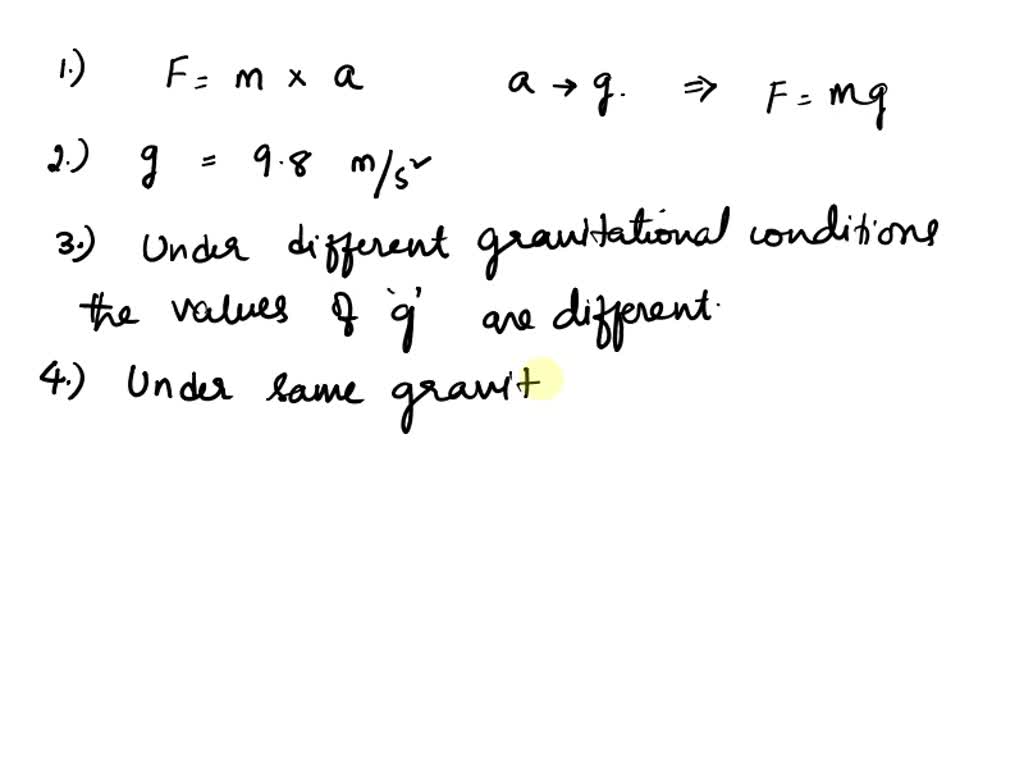 1.) F = m × a a → g. ⇒ F = mg
2.) g = 9.8 m/s²
3.) Under different gravitational conditions
the values of 'g' are different.
4.) Under same gravit